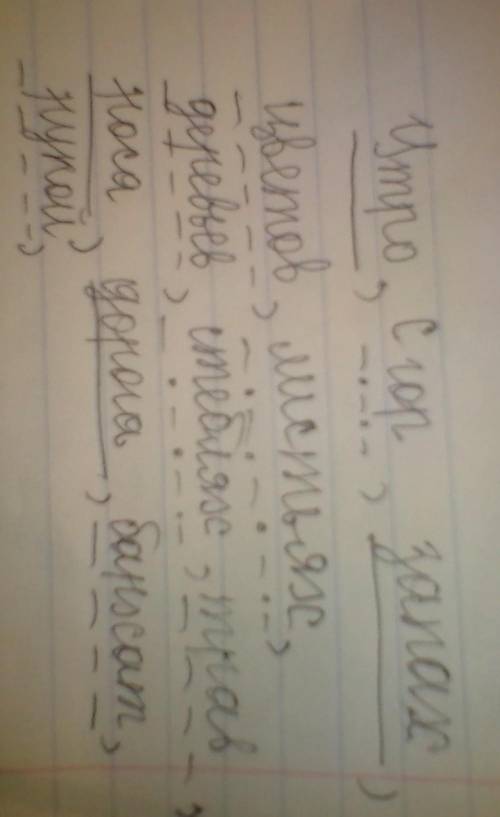 Утро, с гор, запах,
цветов, листьях,
деревьев, стеблях, трав,
нога, дорога, бархат,